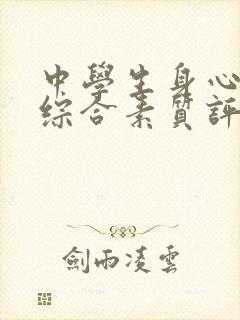 中學生身心
綜合素質評
劍雨凌雲